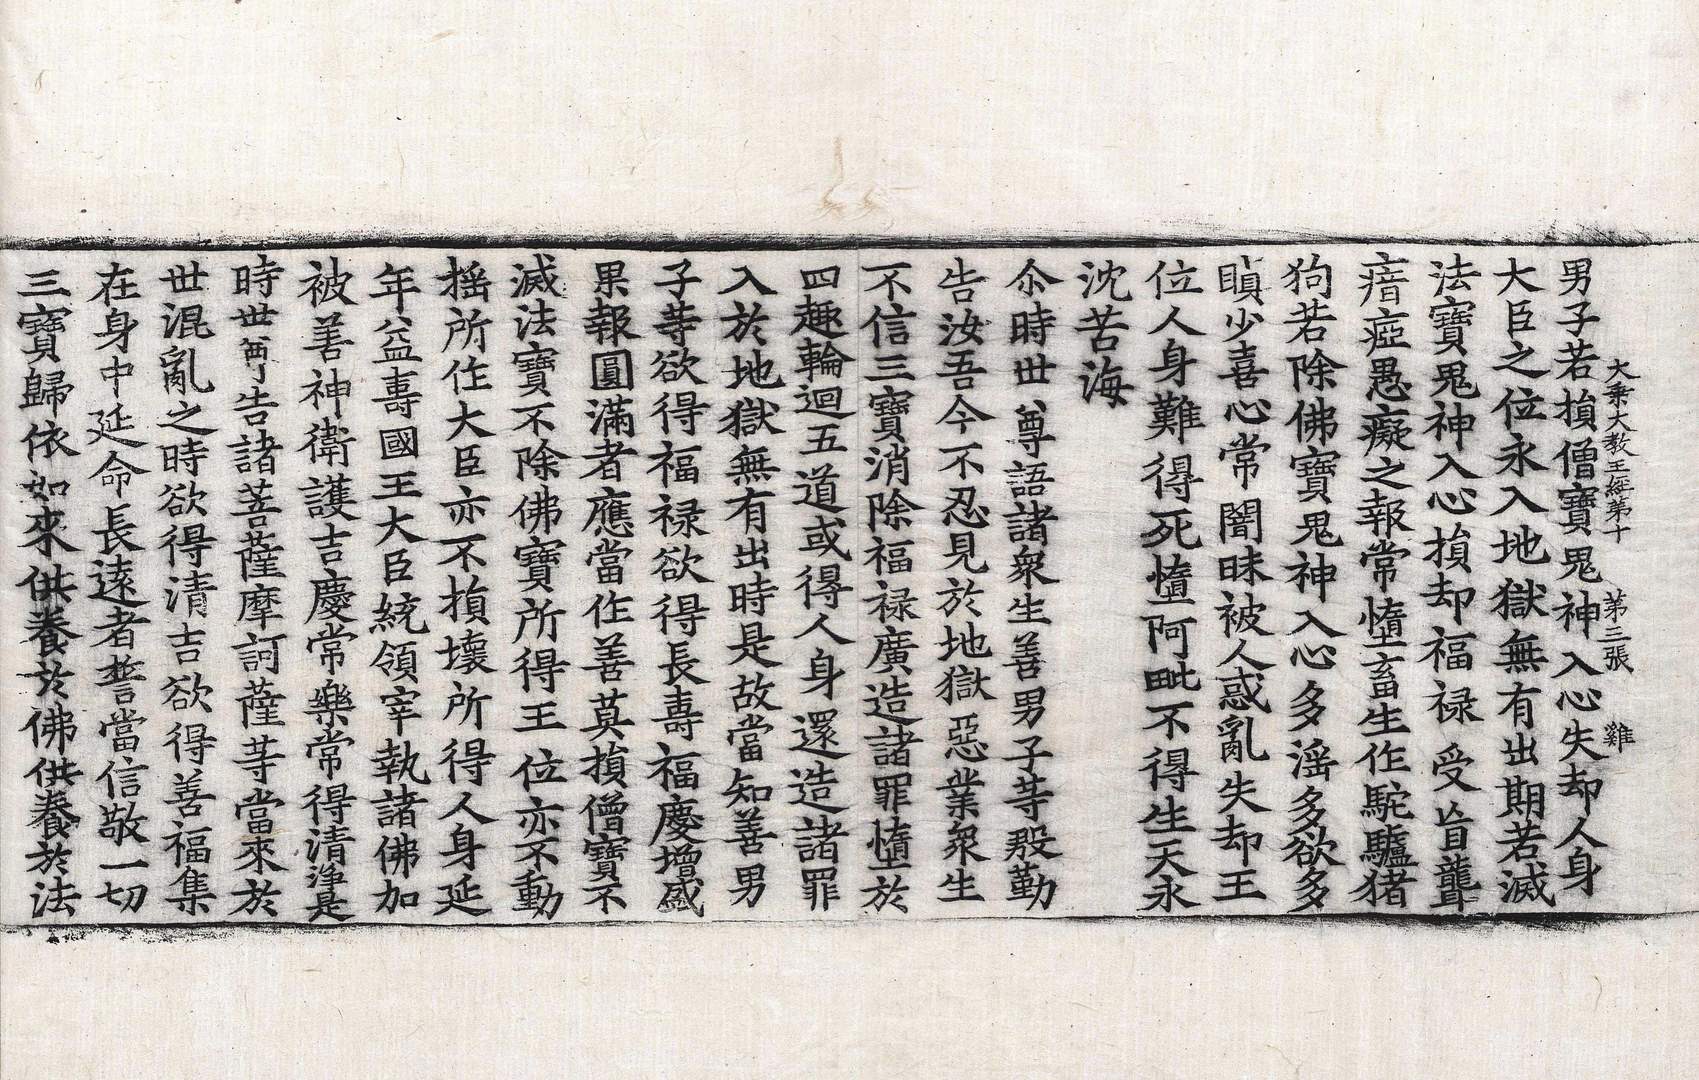 大乗大教王経第十　第三張　難
男子若損僧寶鬼神入心失却人身
大臣之位永入地獄無有出期若滅
法寶鬼神入心損却福禄受盲聾
瘖瘂愚癡之報常墮畜生作駝驢猪
狗若除佛寶鬼神入心多滛多欲多
瞋少喜心常闇昧被人惑亂失却王
位人身難得死墮阿毗不得生天永
沈苦海
尒時世尊語諸衆生善男子等殷勤
告汝吾今不忍見於地獄惡業衆生
不信三寶消除福禄廣造諸罪墮於
四趣輪迴五道或得人身還造諸罪
入於地獄無有出時是故當知善男
子等欲得福禄欲得長壽福慶增盛
果報圓滿者應當作善莫損僧寶不
滅法寶不除佛寶所得王位亦不動
揺所作大臣亦不損壞所得人身延
年益壽國王大臣統領宰執諸佛加
被善神衛護吉慶常樂常得清淨是
時世尊告諸菩薩摩訶薩等當來於
世混亂之時欲得清吉欲得善福集
在身中延命長遠者誓當信敬一切
三寶歸依如來供養於佛供養於法